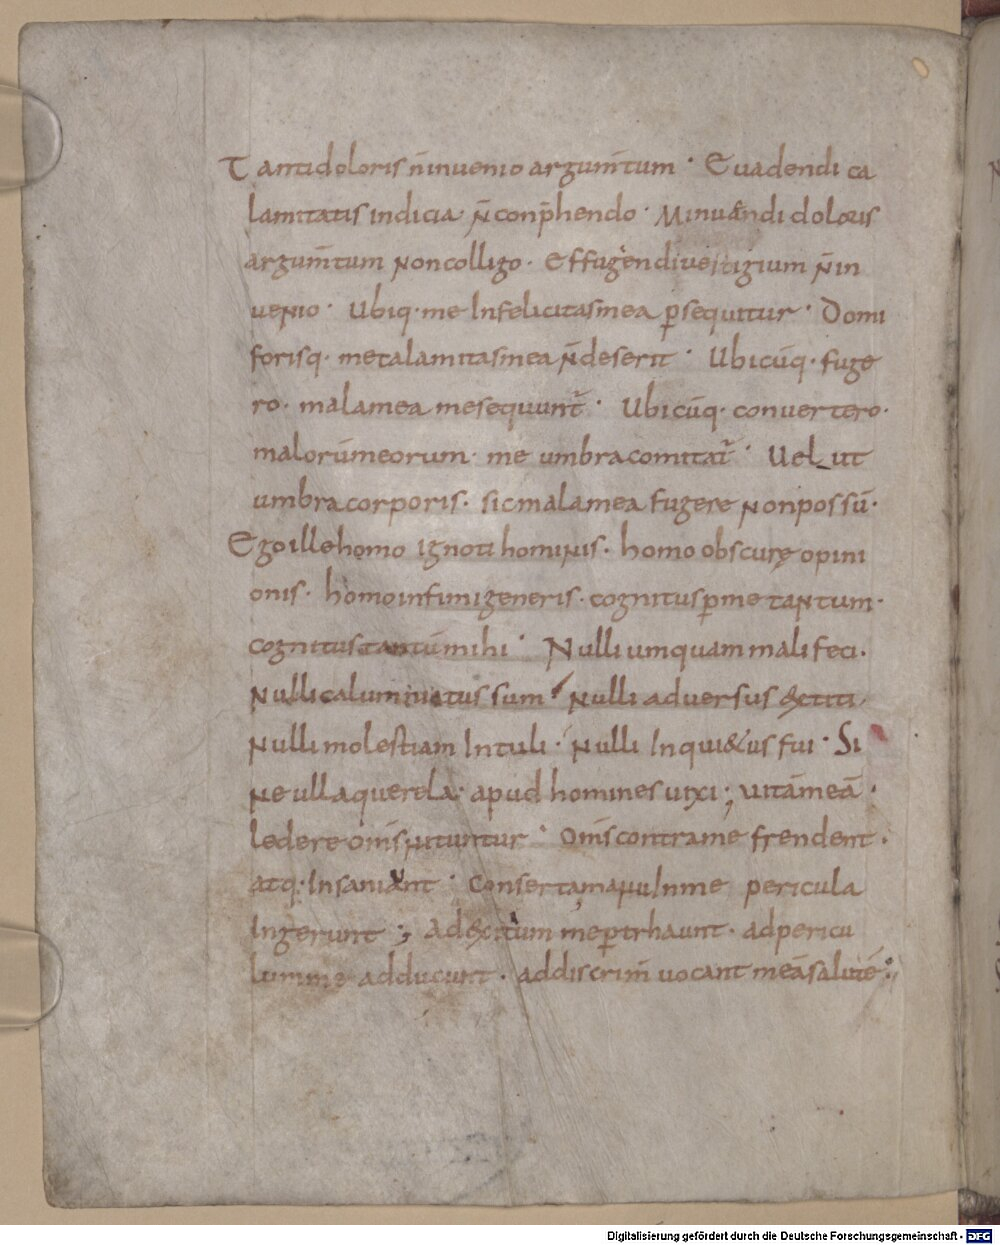 Tantidoloris n̄inuenio argum̄tum · Euadendi ca
lamitatis indicia · n̄ conp̄hendo · Minuandi doloris
argum̄tum noncolligo · Effugendiuestigium n̄in
uenio · Ubiq · me Infelicitasmea p̄sequitur · Domi
forisq · metalamitasmea n̄deserit · Ubicūq · fuge
ro · malamea mesequunt̄ · Ubicūq · conuertero ·
malorūmeorum · me umbracomitat̄ · Uel ut
umbracorporis · sicmalamea fugere nonpossū ·
Egoillehomo ignoti hominis · homo obscurę opini
onis · homoinfimigeneris · cognitusp̄me tantum ·
cognitustantūmihi · Nulli umquam mali feci ·
Nullicalumniatus sum · Nulli aduersus &titi ·
Nulli molestiam Intuli · Nulli Inqui&us fui · Si
ne ullaquerela · apud homines uixi ; uitāmeā ·
ledere om̄s nituntur · Om̄s contrame frendent ·
atq · Insaniant · ConsertamanuInme pericula
Ingerunt ; Ad&citum mep̄trhaunt · adpericu
lumme adducunt · addiscrim̄ uocant meāsalutē ·
Digitalisierung gefördert durch die Deutsche Forschungsgemeinschaft - DFG